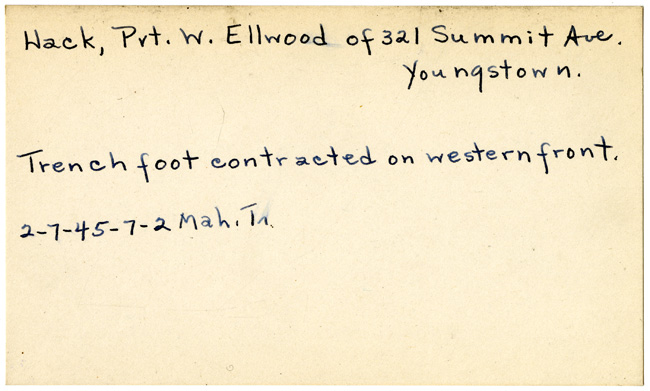 Hack, Pvt. W. Ellwood of 321 Summit Ave.
Youngstown.
Trench foot contracted on western front.
2-7-45-7-2 Mah. Tr.